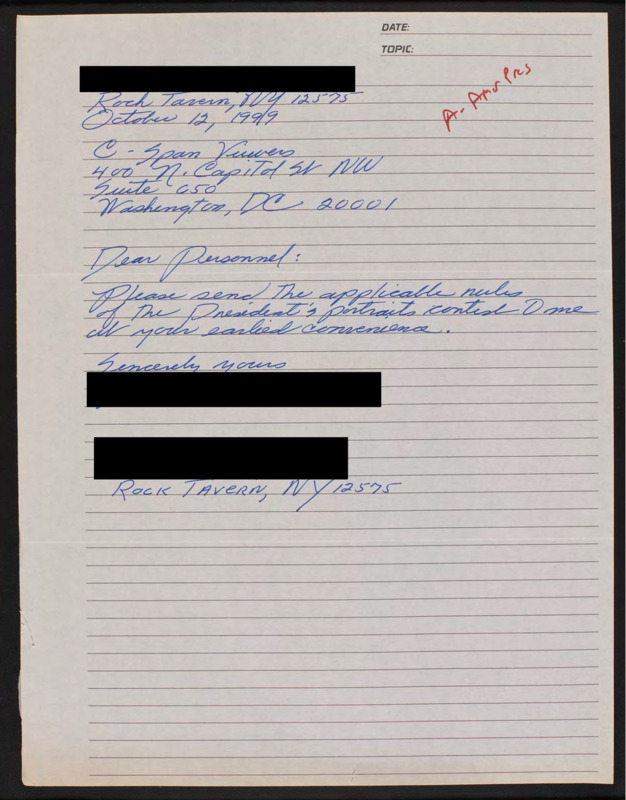 DATE:
TOPIC:
A. Am Prs
Rock Tavern, NY 12575
October 12, 1999
C-Span Viewers
400 N. Capitol St NW
Suite 650
Washington, DC 20001
Dear Personnel:
Please send the applicable rules
of the President's portraits contest to me
at your earlied convenience.
Sincerely yours
ROCK TAVERN, NY 12575